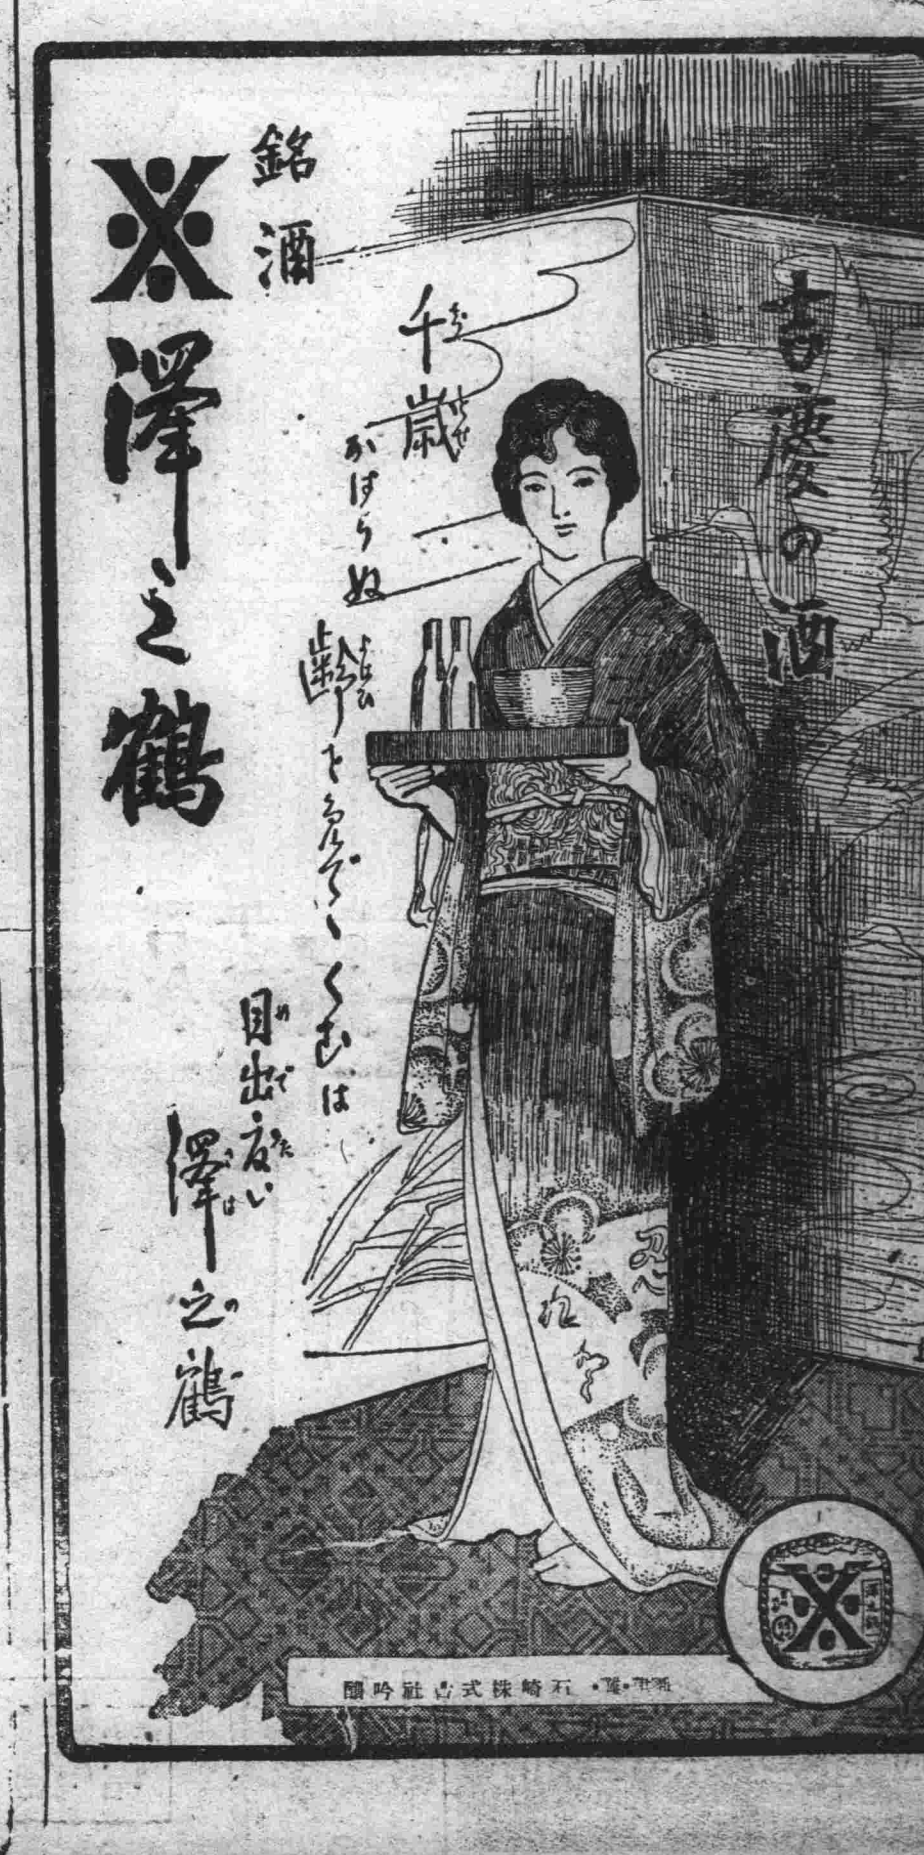 吉慶の酒
千歳
かはらぬ
齢をめでゝくむは
目出度い
澤之鶴
銘酒
澤之鶴
石崎株式会社吟醸